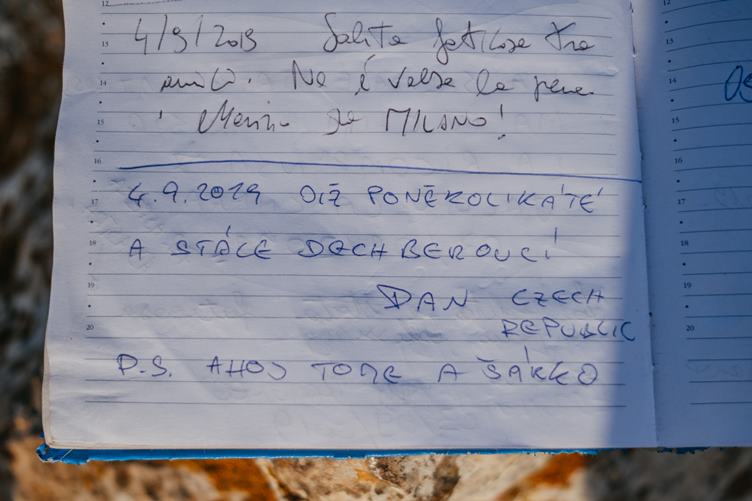 4/9/2019 Salita faticosa tra
amici. Ne è valsa la pena
da MILANO!
4.9.2019 OIŽ PONĚKOLIKÁTÉ
A STÁLE DECHBEROUCÍ
DAN CZECH
REPUBLIC
P.S. AHOJ TOME A ŠÁRKO
12
13
14
15
16
17
18
19
20
12
13
14
15
17
18
19
20